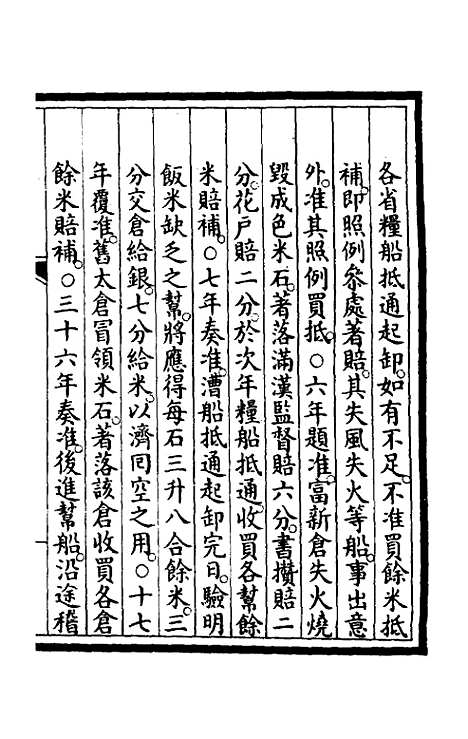 各省糧船抵通起卸。如有不足。不准買餘米抵
補。即照例叅處著賠。其失風失火等船。事出意
外。准其照例買抵。○六年題准。富新倉失火燒
毀成色米石。著落滿漢監督賠六分。書攢賠二
分。花戶賠二分。於次年糧船抵通。收買各幫餘
米賠補。○七年奏准。漕船抵通起卸完日。驗明
飯米缺乏之幫。將應得每石三升八合餘米。三
分交倉給銀。七分給米。以濟囘空之用。○十七
年覆准。舊太倉冒領米石。著落該倉收買各倉
餘米賠補。○三十六年奏准。後進幫船。沿途稽